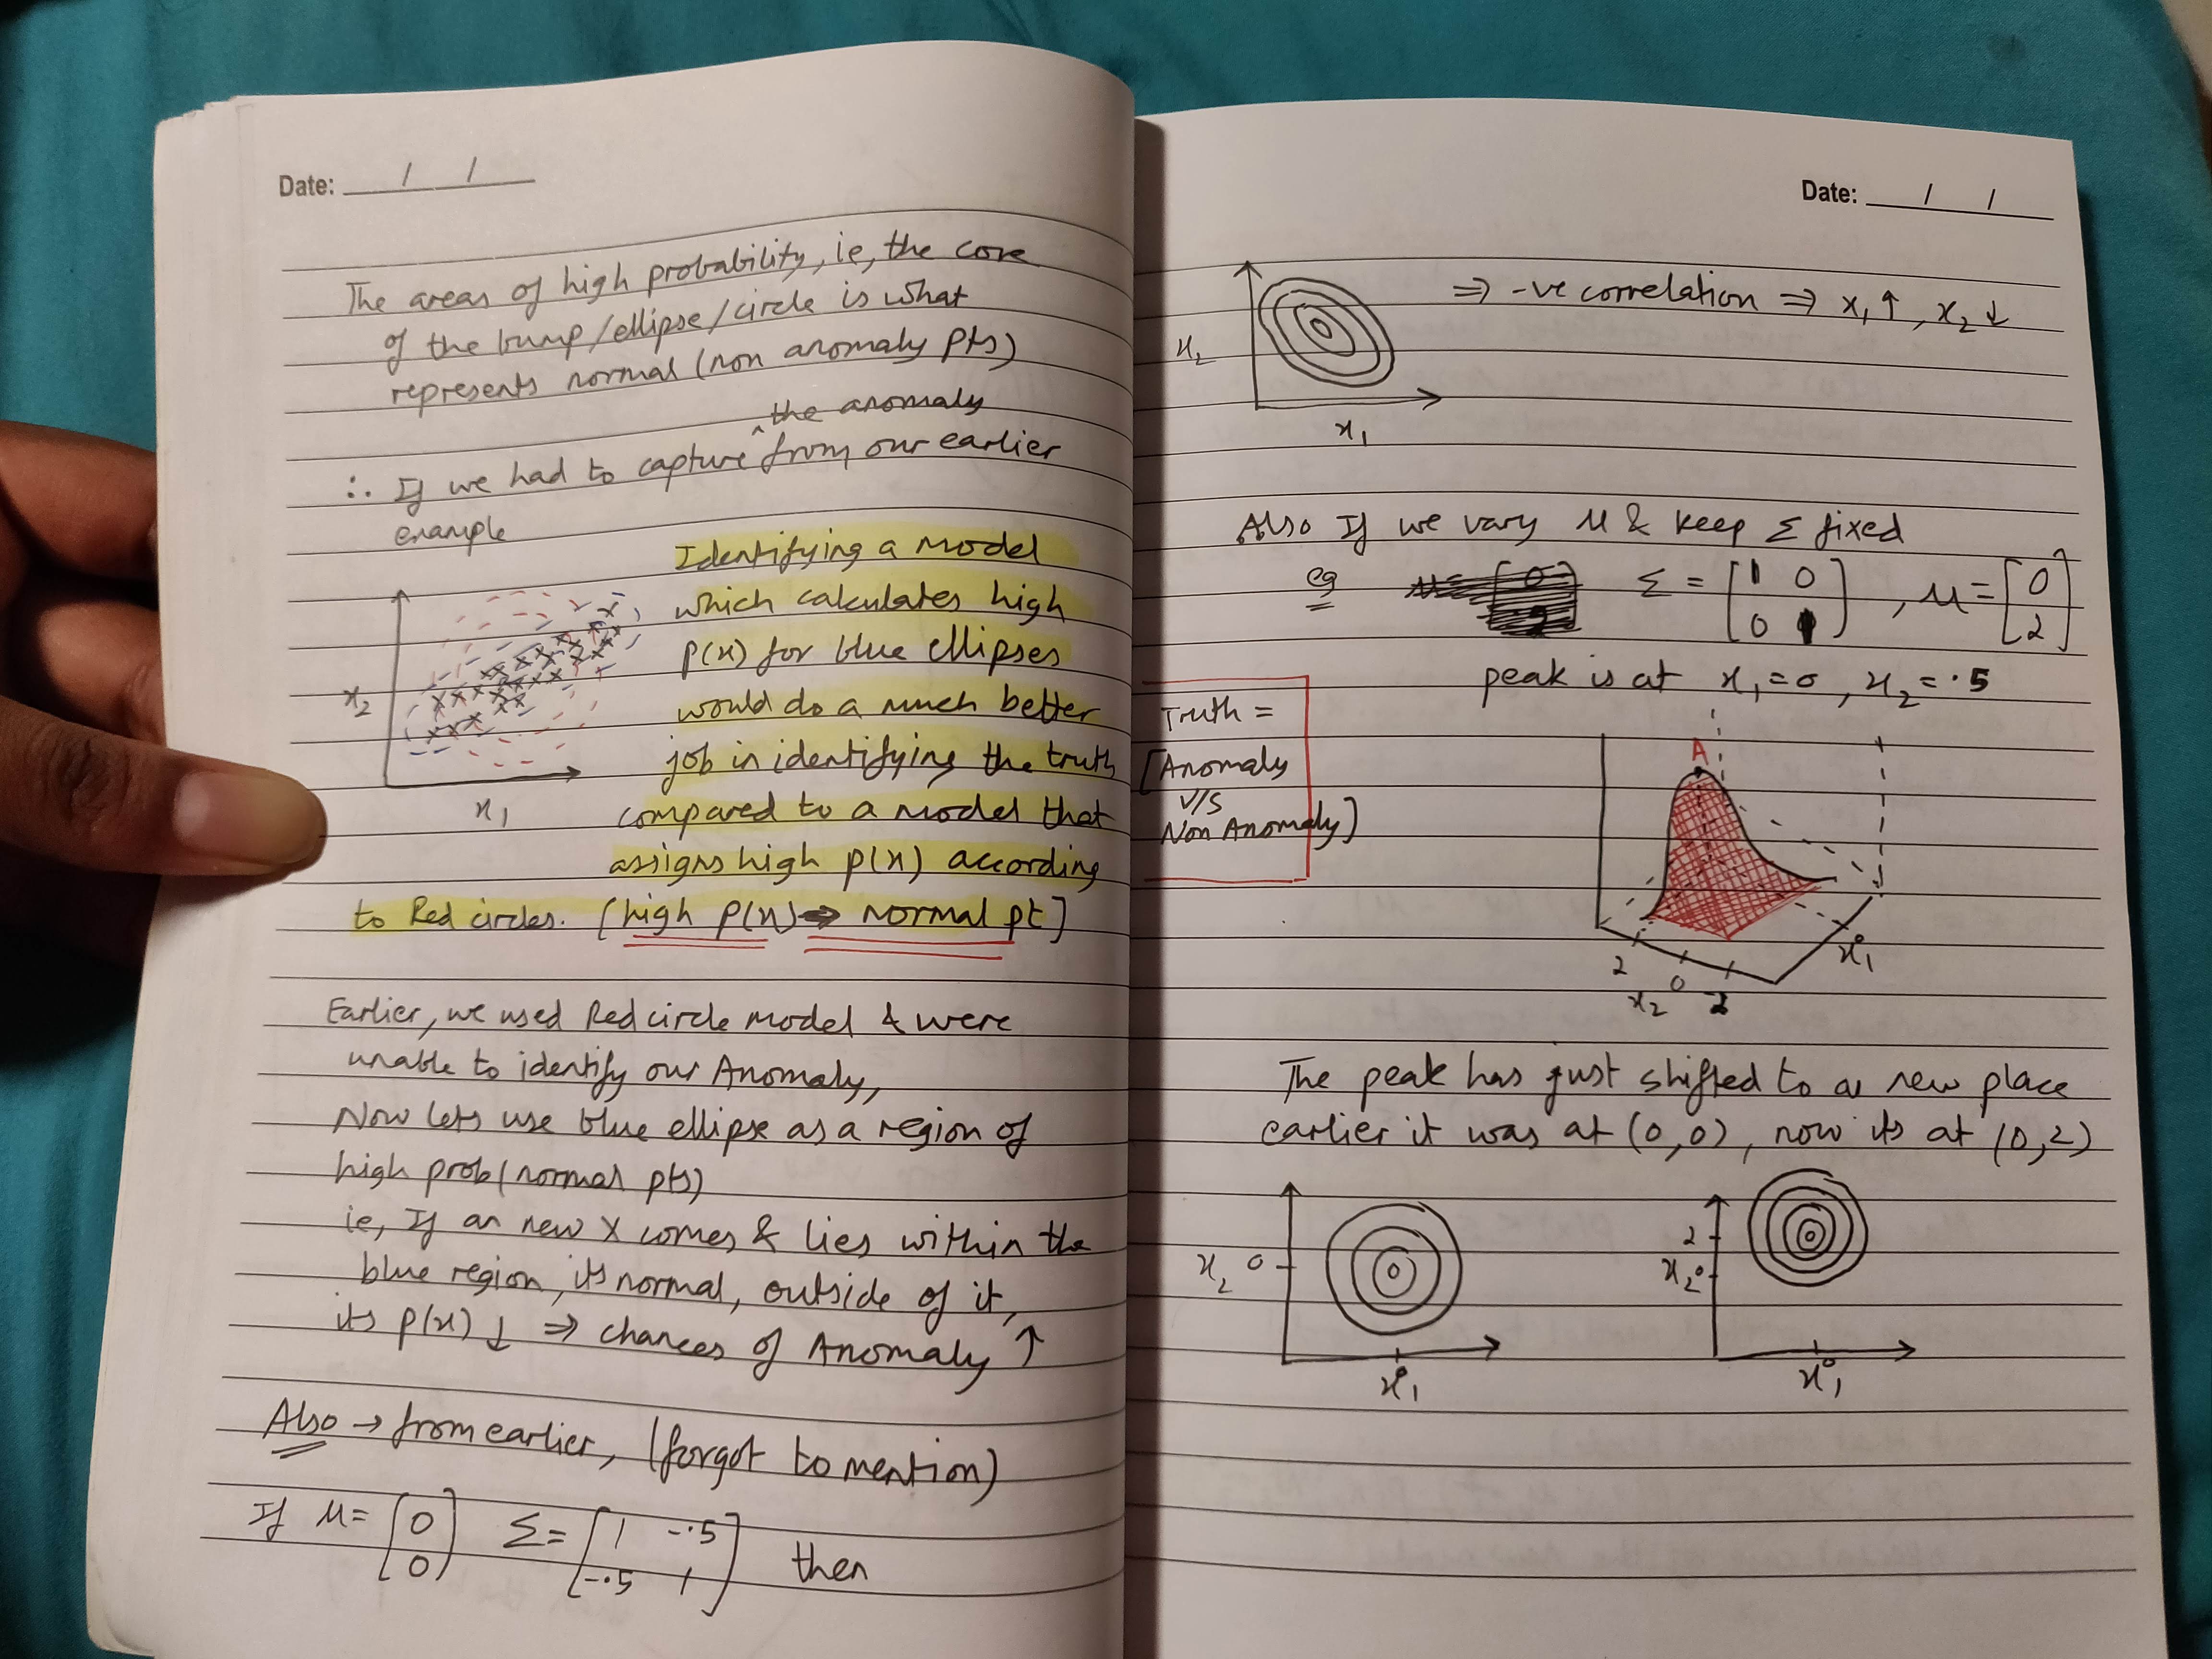 Date: / /
The areas of high probability, ie, the core
of the bump/ellipse/circle is what
represents normal (non anomaly pts)
the anomaly
∴ If we had to capture ^ from our earlier
example
Identifying a model
which calculates high
p(x) for blue ellipses
would do a much better
job in identifying the truth
compared to a model that
assigns high p(x) according
to Red circles. [high p(x) ⇒ normal pt]
x2
x1
Earlier, we used Red circle model & were
unable to identify our Anomaly,
Now lets use blue ellipse as a region of
high prob (normal pts)
ie, If a new x comes & lies within the
blue region, its normal, outside of it,
its p(x) ↓ ⇒ chances of Anomaly ↑
Also → from earlier, (forgot to mention)
If μ = [0 0] Σ = [1 -.5 -.5 1] then
Date: / /
x2
x1
⇒ -ve correlation ⇒ x1 ↑, x2 ↓
Also If we vary μ & keep Σ fixed
eg Σ = [1 0 0 1], μ = [0 2]
peak is at x1 = 0, x2 = .5
Truth =
[Anomaly
v/s
Non Anomaly]
A
2 0
x2
x1 0
The peak has just shifted to a new place
earlier it was at (0,0), now its at (0,2)
x2 0
x1 0
2
x2 0
x1 0